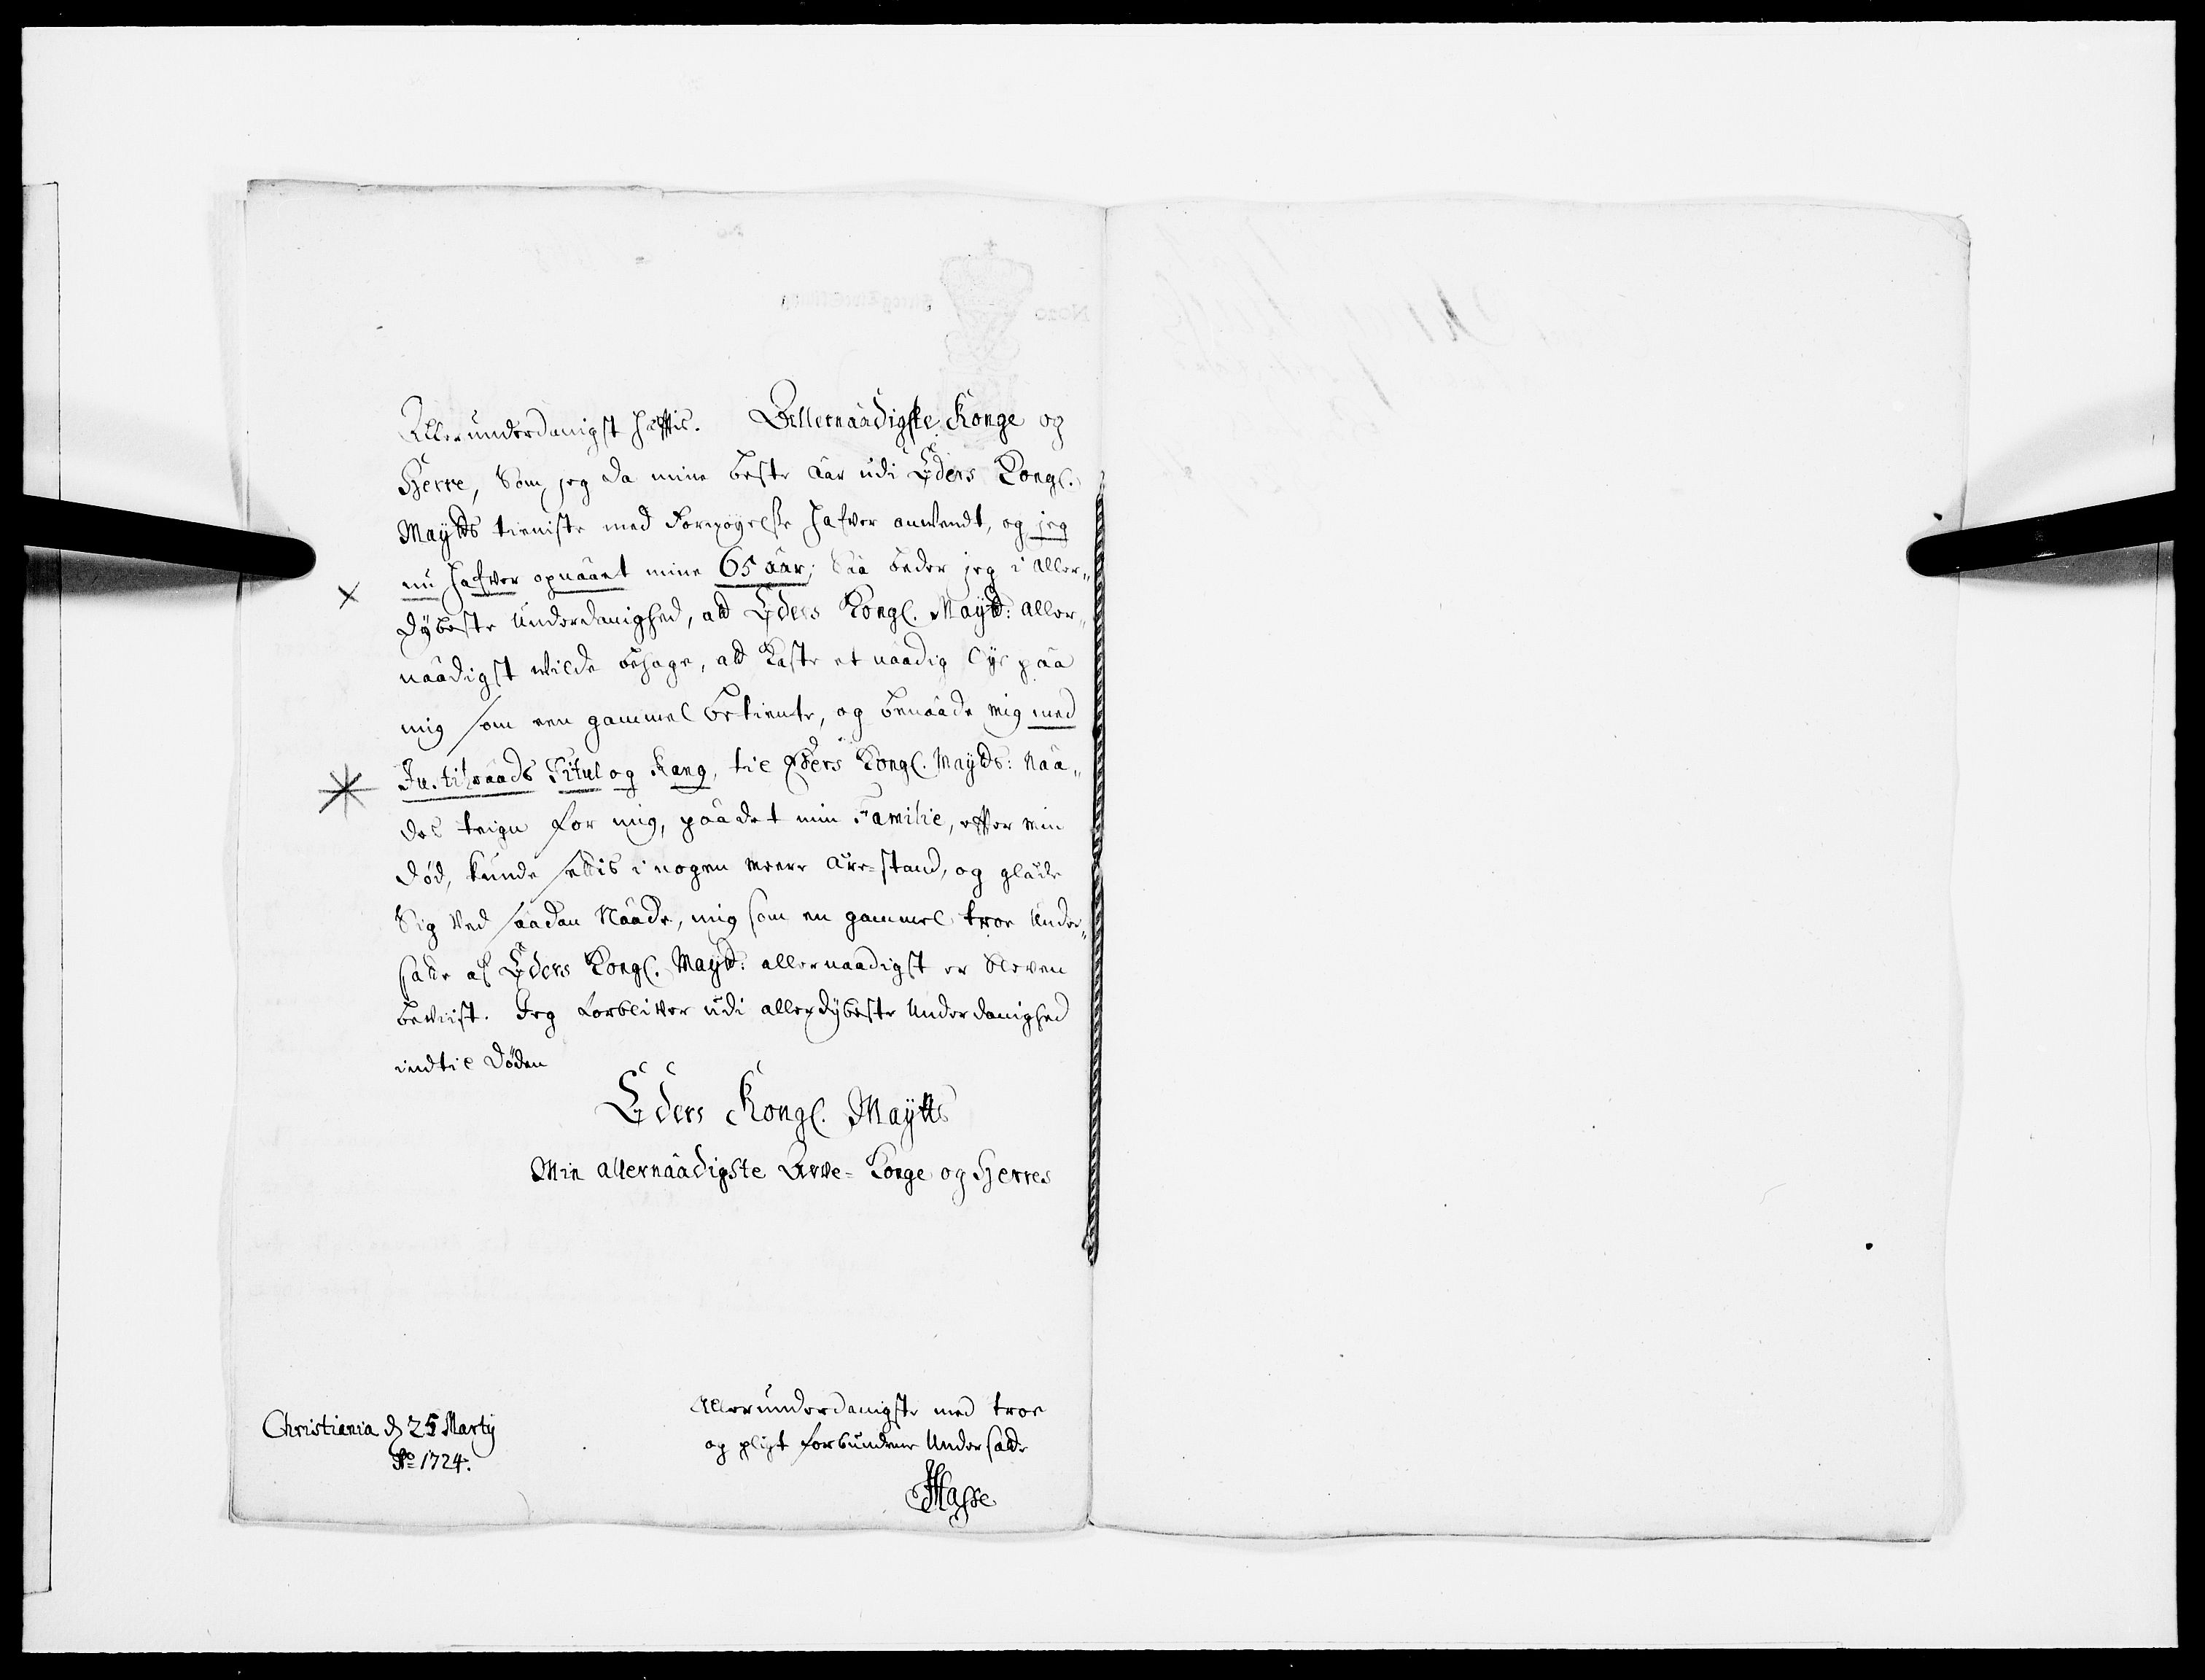 Allerunderdanigst haffis. Allernaadigste Konge og
Herre, Som jeg da mine beste aar udi Eders Kongl.
Maytts tieniste med Fornøyelse hafver anvendt, og jeg
nu hafver opnaaet mine 65 aar; Saa beder jeg i aller„
dybeste Underdanighed, att Eders Kongl. Maytt: aller„
naadigst wilde behage, att kaste et naadig Øye paa
mig som een gammel betiente, og benaade mig med
Justitzraads Titul og Rang, til Eders Kongl. Maytts: Naa„
des teign for mig, paa det min Familie, effter min
død, kunde settis i nogen meere ære-stand, og glæde
Sig ved saadan Naade, mig som en gammel troe Under„
satte af Eders Kongl. Maytt: allernaadigst er bleven
beviist. Jeg forbliver udi allerdybeste Underdanighed
indtil Døden
Eders Kongl. Maytts
Min allernaadigste Arve-Konge og Herres
Allerunderdanigste med troe
og pligt forbundene Undersatte
Christiania d 25 Martij
Ao 1724.
Hasse